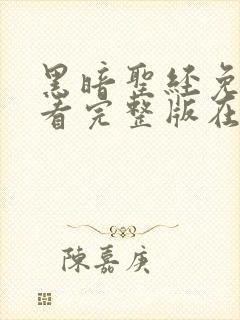 黑暗聖經免
看完整版在
陳嘉庚